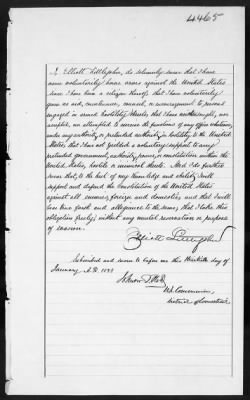 4465
I Elliott Littlejohn, do solemnly swear that I have
never voluntarily borne arms against the United States
since I have been a citizen thereof, that I have voluntarily
given no aid, countenance, counsel, or encouragement to persons
engaged in armed hostility thereto, that I have neither sought, nor
accepted, nor attempted to exercise the functions of any office whatever,
under any authority, or pretended authority in hostility to the United
States, that I have not yielded a voluntary support to any
pretended government, authority, power, or constitution within the
United States, hostile or inimical thereto. And I do further
swear that, to the best of my knowledge and ability I will
support and defend the Constitution of the United States
against all enemies, foreign and domestic, and that I will
bear true faith and allegiance to the same; that I take this
obligation freely without any mental reservation or purpose
of evasion.
Elliott Littlejohn
Subscribed and sworn to before me this day of
January A.D.
U.S. Commissioner,
District of Connecticut